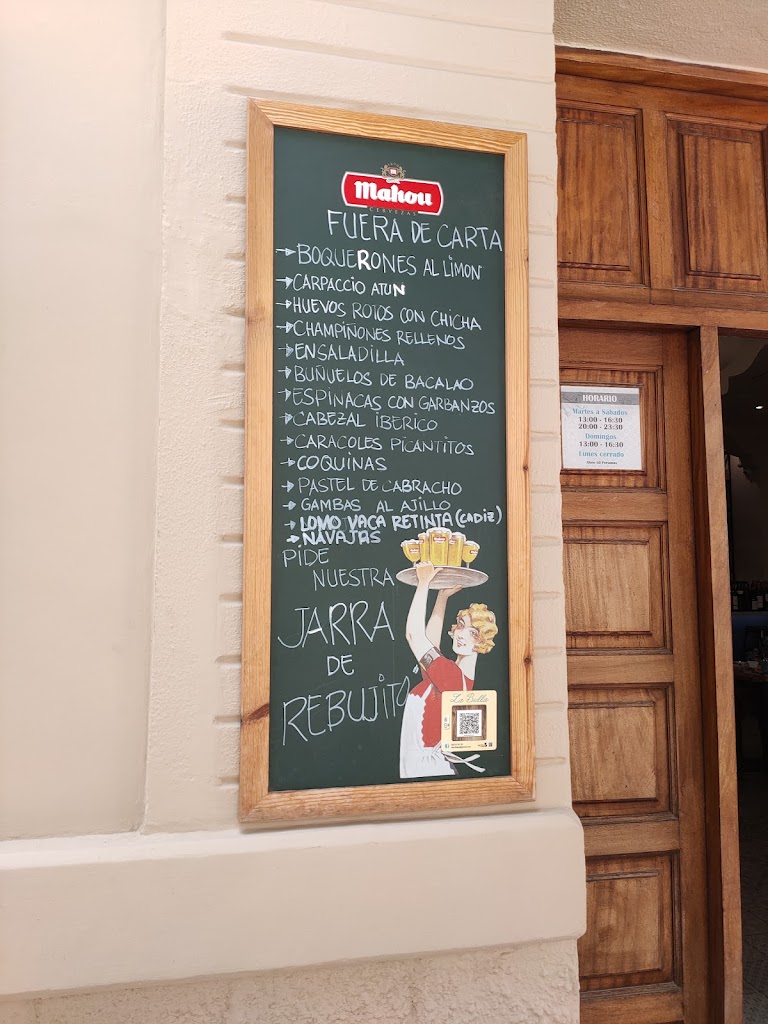 Mahou
CERVEZAS
FUERA DE CARTA
BOQUERONES AL LIMON
CARPACCIO ATUN
HUEVOS ROTOS CON CHICHA
CHAMPIÑONES RELLENOS
ENSALADILLA
BUÑUELOS DE BACALAO
ESPINACAS CON GARBANZOS
CABEZAL IBERICO
CARACOLES PICANTITOS
COQUINAS
PASTEL DE CABRACHO
GAMBAS AL AJILLO
LOMO VACA RETINTA (CADIZ)
NAVAJAS
PIDE
NUESTRA
JARRA
DE
REBUJITO
La Bella
HORARIO
Martes a Sábados
13:00 - 16:30
20:00 - 23:30
Domingos
13:00 - 16:30
Lunes cerrado